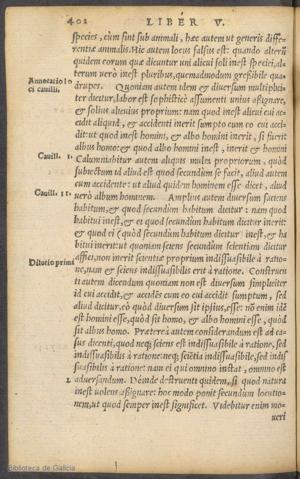 402 LIBER V.
species, cùm sint sub animali, hæc autem ut generis diffe-
rentiæ animalis. Hic autem locus falsus est: quando alterũ
quidem eorum quæ dicuntur uni alicui soli inest speciei, al-
terum verò inest pluribus, quemadmodum gressibile qua-
Annotatio lo
ci cavilli.
drupes. Quoniam autem idem & diversum multiplici-
ter dicitur, labor est sophisticè assumenti unius assignare,
& solius alicuius proprium: nam quod inest alicui cui ac-
cidit aliquid, & accidenti inerit sumpto cum eo cui acci-
dit: ut quod inest homini, & albo homini inerit, si fuerit
albus homo: & quod albo homini inest, inerit & homini
Cavill. I.
Calumniabitur autem aliquis multa propriorum, quòd
subiectum id aliud est quod secundùm se facit, aliud autem
cum accidente: ut aliud quidem hominem esse dicet, aliud
Cavill. II.
verò album hominem. Amplius autem diversum faciens
habitum, & quod secundùm habitum dicitur: nam quod
habitui inest, & ei quod secundùm habitum dicitur inerit:
& quod ei (quòd secundùm habitum dicitur) inest, & ha
bitui inerit: ut quoniam sciens secundùm scientiam dicitur
Dilutio primi
affici, non inerit scientiæ proprium indissuasibile à ratio-
ne, nam & sciens indissuasibilis erit à ratione. Construen
ti autem dicendum quoniam non est diversum simpliciter
id cui accidit, & accidẽs cum eo cui accidit sumptum, sed
aliud dicitur, eò quòd diversum sit ipsius esse: nõ enim idẽ
est homini esse, quòd sit homo, & albo homini esse, quòd
sit albus homo. Præterea autem considerandum est ad ca-
sus dicenti, quod neq; sciens est indissuasibile à ratione, sed
indissuasibilis à ratione: neq; sciẽtia indissuasibile, sed indis
suasibilis à ratione: nam ei qui omnino instat, omnino est
adversandum. Deinde destruenti quidem, si quod natura
inest volens assignare: hoc modo ponit secundum locutio-
nem, ut quod semper inest significet. Videbitur enim mo-
veri
Biblioteca de Galicia